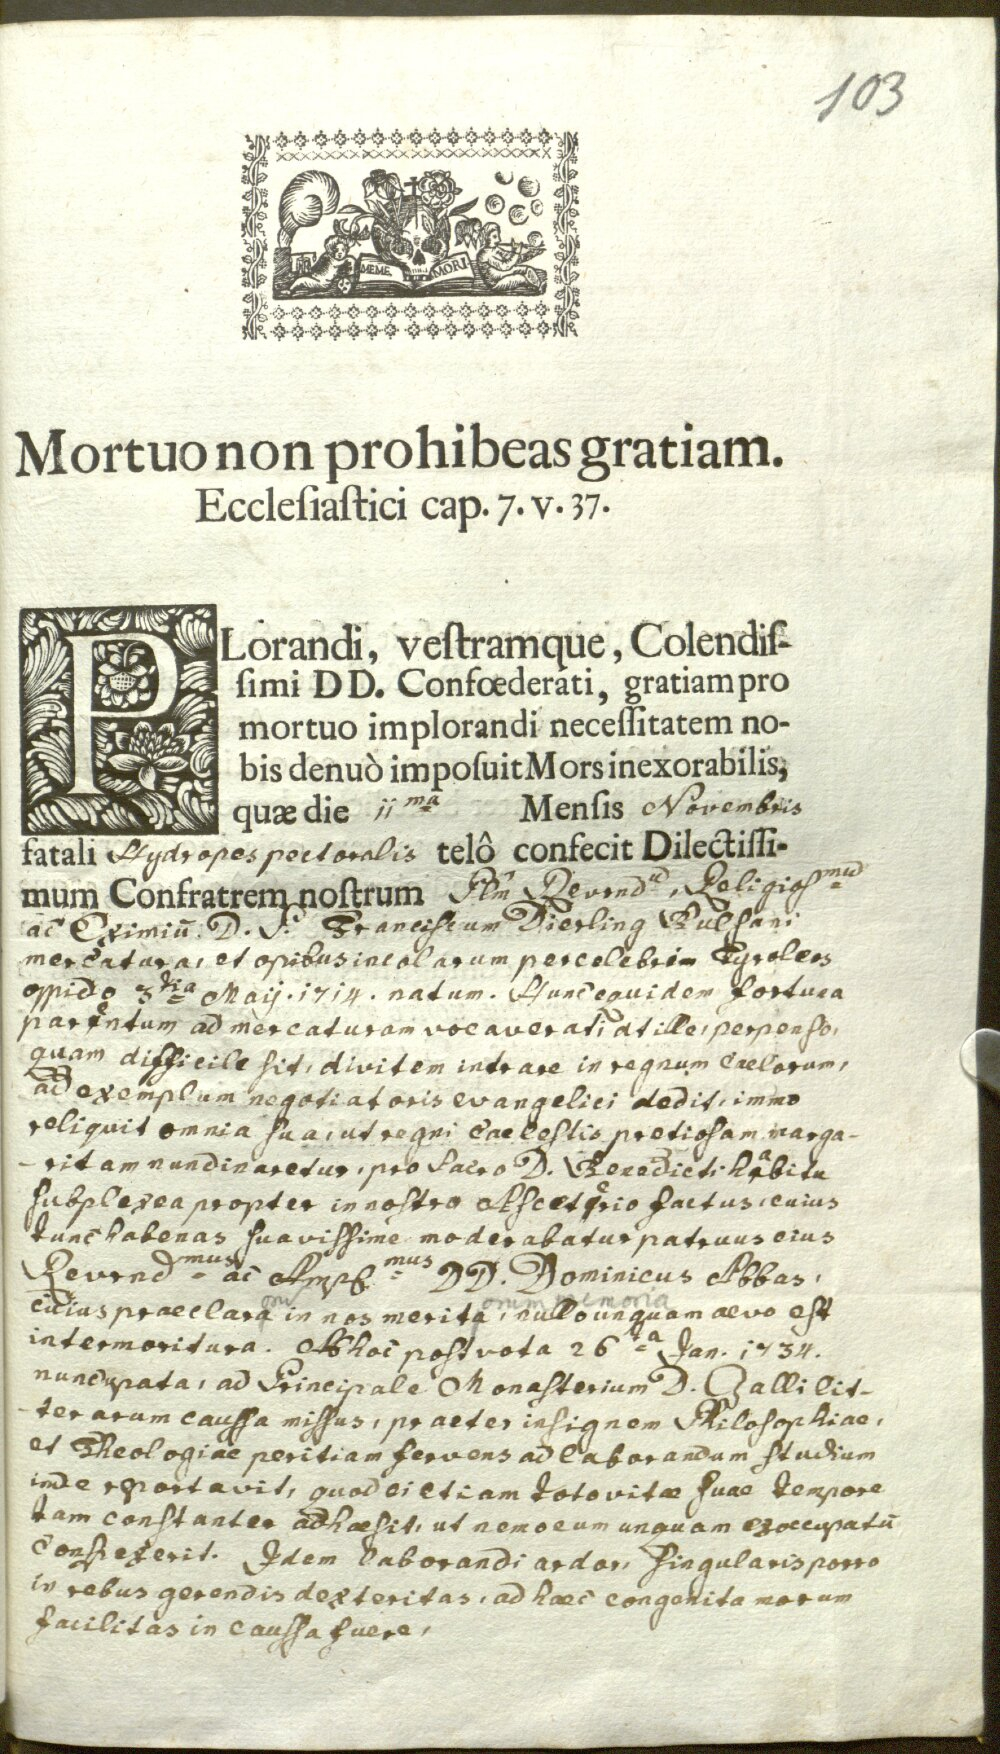 103
MEME MORI
Mortuo non prohibeas gratiam.
Eccleſiaſtici cap. 7. v. 37.
PLorandi, veſtramque, Colendiſ-
ſimi DD. Confœderati, gratiam pro
mortuo implorandi neceſſitatem no-
bis denuò impoſuit Mors inexorabilis,
quæ die 11ma Menſis Novembris
fatali Hydropes pectoralis telô confecit Dilectiſſi-
mum Confratrem noſtrum Revernd, Religiosmus
ac Eximiū. D. P. Franciſcum Dierling Bulſani
mercatura, et opibus incolarum percelebrim Tyroleos
oppido 3tia Maij. 1714. natum. Hunc equidem fortuna
parentum ad mercaturam vocaverat, at ille, perpenſo,
quam difficile ſit, divitem intrare in regnum Caelorum,
ad exemplum negotiatoris evangelici dedit, immo
reliquit omnia ſua, ut regni Caeleſtis pretioſam marga-
-ritam nundinaretur, pro ſacro D. Benedicti habitu
ſubplex ea propter in noſtro Aſceterio factus, cuius
tunc habenas ſuaviſſime moderabatur patruus eius
Reverndmus ac Ampl.mus DD. Dominicus Abbas,
cuius praeclara in nos merita, nullo unquam aevo eſt
orum memoria
intermoritura. Ab hoc poſt vota 26ta Jan. 1734.
nuncupata, ad Principale Monaſterium D. Galli lit-
-terarum cauſſa miſſus, praeter inſignem Philoſophiae,
et Theologiae peritiam fervens ad laborandum ſtudium
inde reportavit, quod ei etiam toto vitæ ſuae tempore
tam conſtanter adhæſit, ut nemo eum unquam exoccupatū
Conſpexerit. Idem laborandi ardor, ſingularis porro
in rebus gerendis dexteritas, ad haec congenita morum
facilitas in cauſſa fuere,